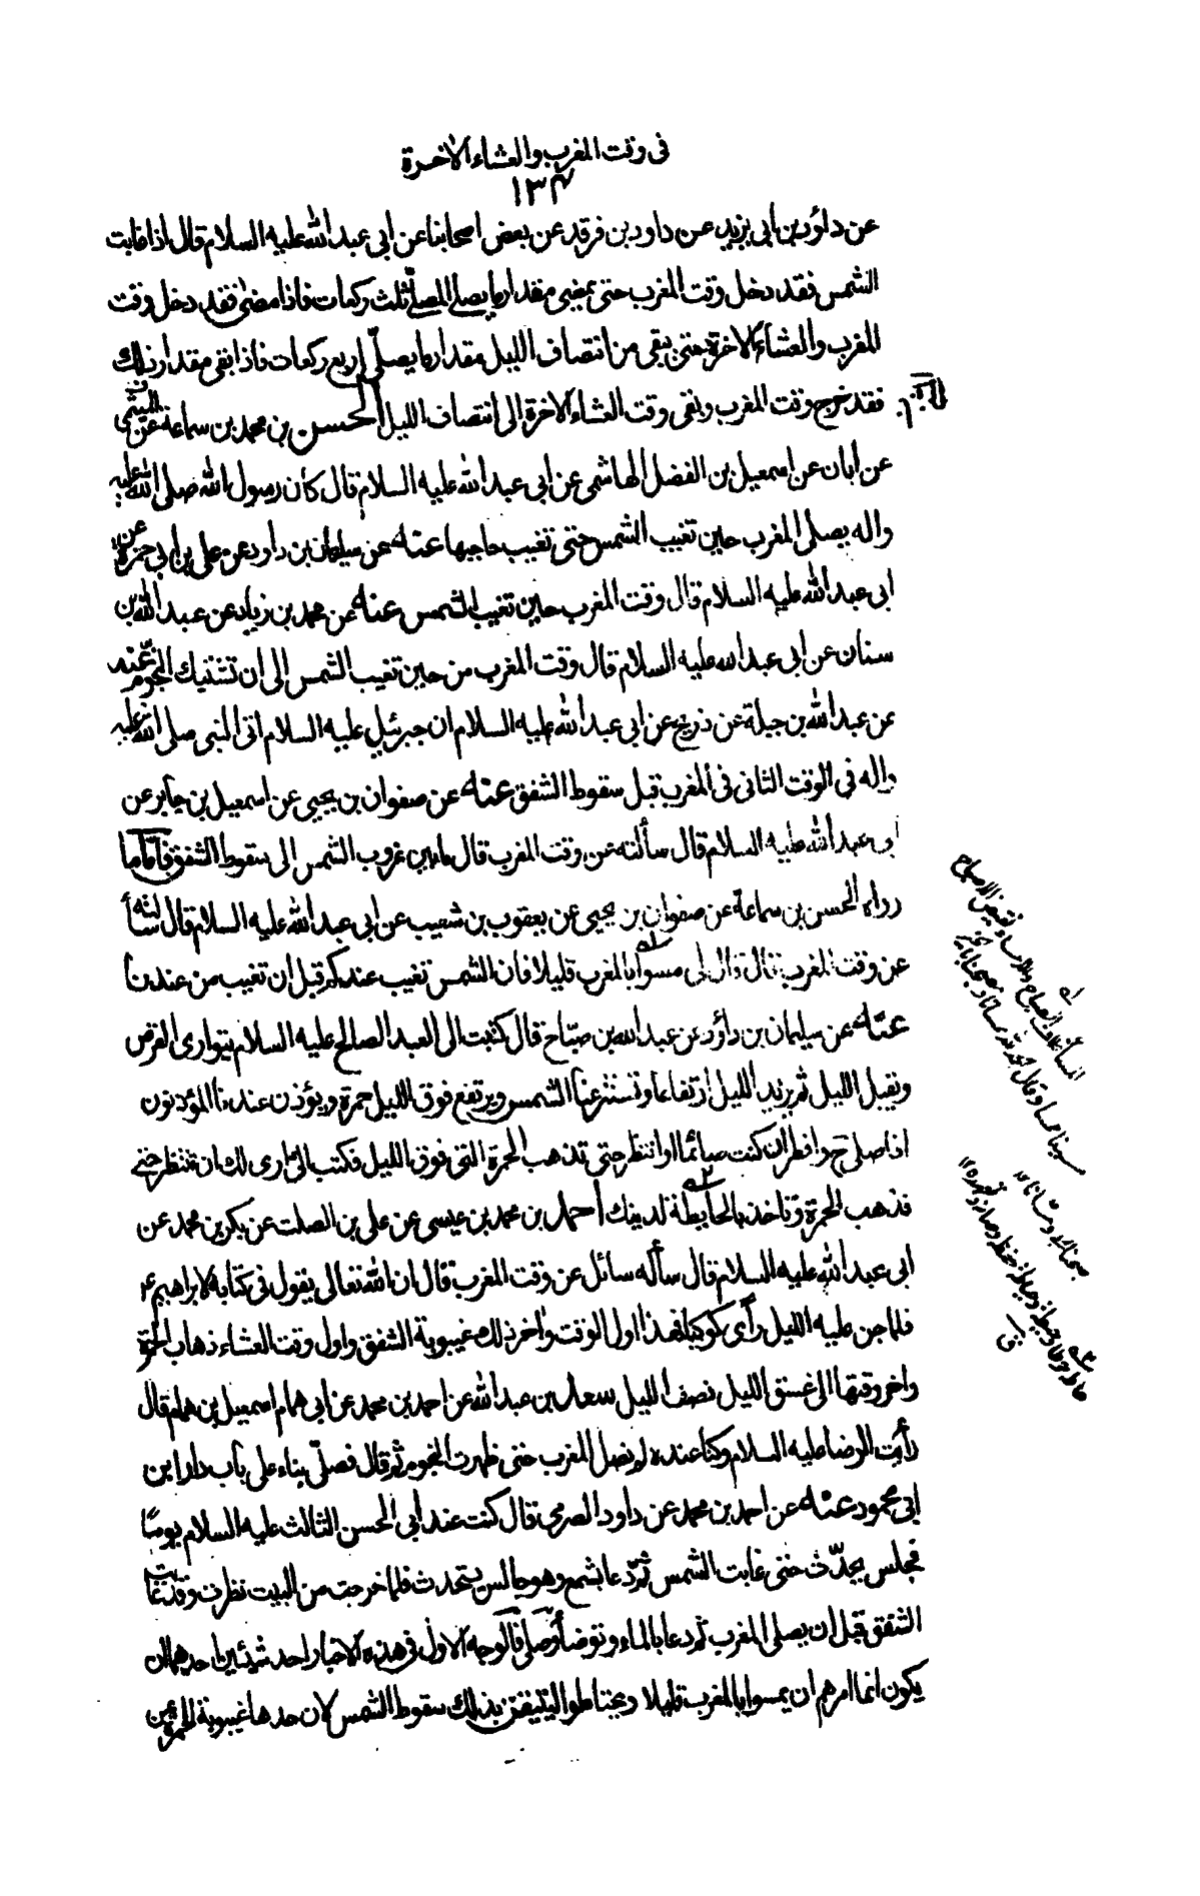 فى وقت المغرب والعشاء الاخرة
١٣٤
عن داؤد بن ابى يزيد عن داود بن فرقد عن بعض اصحابنا عن ابى عبد الله عليه السلام قال اذا غابت
الشمس فقد دخل وقت المغرب حتى يمضى مقدار ما يصلى المصلى ثلث ركعات فاذا مضى فقد دخل وقت
المغرب والعشاء الاخرة حتى يبقى من انتصاف الليل مقدار ما يصلّى اربع ركعات فاذا بقى مقدار ذلك
فقد خرج وقت المغرب وبقى وقت العشاء الاخرة الى انتصاف الليل الحسن بن محمد بن سماعة عن
عن ابان عن اسمعيل بن الفضل الهاشمى عن ابى عبد الله عليه السلام قال كان رسول الله صلى الله عليه
واله يصلى المغرب حين تغيب الشمس حتى تغيب حاجبها عنه عن سليمان بن داود عن على بن ابى حمزة عن
ابى عبد الله عليه السلام قال وقت المغرب حين تغيب الشمس عنه عن محمد بن زياد عن عبد الله بن
سنان عن ابى عبد الله عليه السلام قال وقت المغرب من حين تغيب الشمس الى ان تشتبك النجوم عنه
عن عبد الله بن جبلة عن ذريح عن ابى عبد الله عليه السلام ان جبرئيل عليه السلام اتى النبى صلى الله عليه
واله فى الوقت الثانى فى المغرب قبل سقوط الشفق عنه عن صفوان بن يحيى عن اسمعيل بن جابر عن
ابى عبد الله عليه السلام قال سألته عن وقت المغرب قال ما بين غروب الشمس الى سقوط الشفق فاما ما
رواه الحسن بن سماعة عن صفوان بن يحيى عن يعقوب بن شعيب عن ابى عبد الله عليه السلام قال سألته
عن وقت المغرب فقال قال لى مسوا بالمغرب قليلا فان الشمس تغيب عندكم قبل ان تغيب من عندنا
عنه عن سليمان بن داؤد عن عبد الله بن صبّاح قال كتبت الى العبد الصالح عليه السلام يتوارى القرص
ويقبل الليل ثم يزيد الليل ارتفاعا وتستتر عنا الشمس ويرتفع فوق الليل حمرة ويؤذن عندنا المؤذنون
افاصلى ح وافطر ان كنت صائما او انتظر حتى تذهب الحمرة التى فوق الليل فكتب الىّ ارى لك ان تنتظر حتى
تذهب الحمرة وتاخذ بالحايطة لدينك احمد بن محمد بن عيسى عن على بن الصلت عن بكر بن محمد عن
ابى عبد الله عليه السلام قال سأله سائل عن وقت المغرب قال ان الله تعالى يقول فى كتابه لابراهيم ع
فلما جن عليه الليل رأى كوكبا فهذا اول الوقت واخر ذلك غيبوبة الشفق واول وقت العشاء ذهاب الحمرة
واخر وقتها الى غسق الليل نصف الليل سعد بن عبد الله عن احمد بن محمد عن ابى همام اسمعيل بن همام قال
رأيت الرضا عليه السلام وكنا عنده لم يصل المغرب حتى ظهرت النجوم ثم قال فصلّى بناء على باب دار ابن
ابى محمود عنه عن احمد بن محمد عن داود الصرمى قال كنت عند ابى الحسن الثالث عليه السلام يومًا
فجلس يحدّث حتى غابت الشمس ثمّ دعا بشمع وهو جالس يتحدث فلما خرجت من البيت نظرت وقد غابت
الشفق قبل ان يصلى المغرب ثم دعا بالماء وتوضأ وصلى فالوجه الاول فى هذه الاخبار احد شيئين احدهما ان
يكون انما امرهم ان يمسوا بالمغرب قليلا ويحتاطوا ليتيقن بذلك سقوط الشمس لان حدها غيبوبة الحمرة من